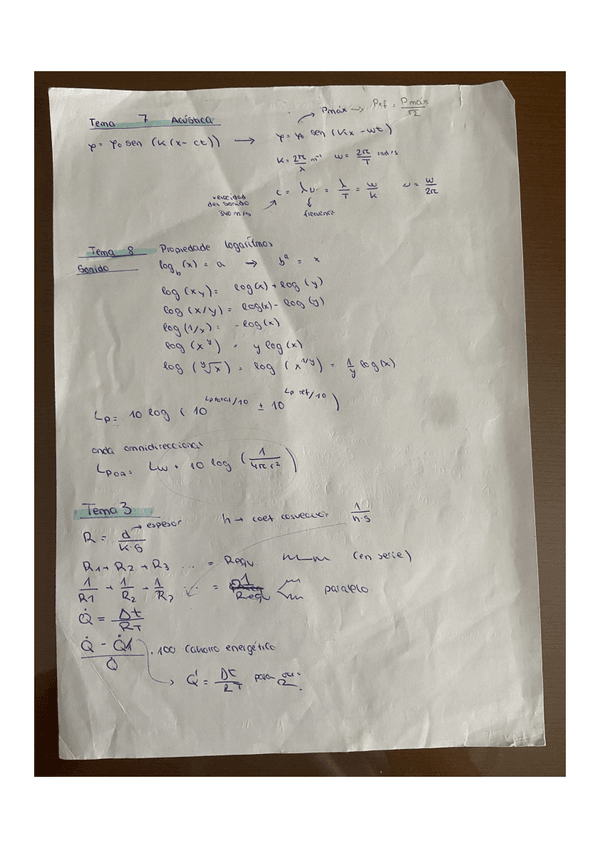 Tema 7 Acústica
Pmáx → Pef = Pmáx/√2
φ = φ₀ sen (K(x - ct)) → φ = φ₀ sen (Kx - wt)
K = 2π/λ m⁻¹ w = 2π/T rad/s
c = λυ = λ/T = w/K υ = w/2π
velocidad del sonido 340 m/s
frecuencia
Tema 8 Propiedade logaritmos
Sonido
log_b (x) = a → bᵃ = x
log (xy) = log(x) + log (y)
log (x/y) = log(x) - log (y)
log (1/x) = - log(x)
log (x^y) = y log (x)
log (^y√x) = log (x^1/y) = 1/y log(x)
Lp = 10 log (10^Lptotal/10 ± 10^Lp ref/10)
onda omnidireccional
Lpoa = Lw + 10 log (1/4πr²)
Tema 3
R = d/K·S → espesor h → coef convección 1/h·S
R1 + R2 + R3 ... = Requ (en serie)
1/R1 + 1/R2 + 1/R3 ... = 1/Requ paralelo
Q̇ = Δt/RT
Q̇ - Q̇1/Q̇ · 100 cahorro energético
Q̇' = Δt/RT para